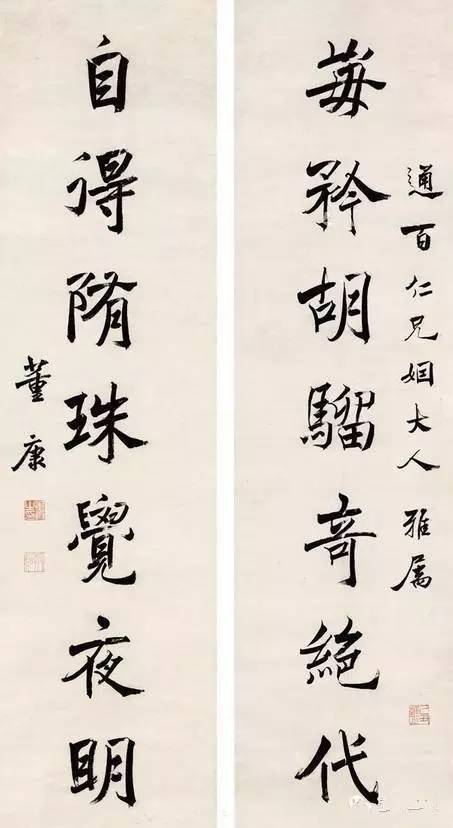 通百仁兄姻大人 雅属
每矜胡騮奇絕代
自得隋珠覺夜明
董康